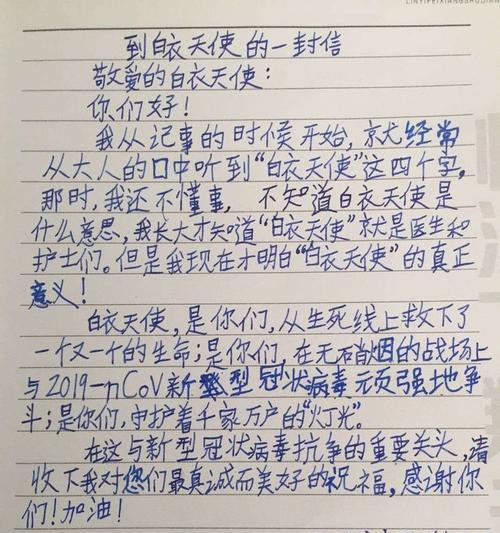 LINYIFEIXIANGSHUDIAN
到白衣天使的一封信
敬爱的白衣天使：
你们好！
我从记事的时候开始，就经常
从大人的口中听到“白衣天使”这四个字，
那时，我还不懂事，不知道白衣天使是
什么意思，我长大才知道“白衣天使”就是医生和
护士们。但是我现在才明白“白衣天使”的真正
意义！
白衣天使，是你们，从生死线上救下了
一个又一个的生命；是你们，在无硝烟的战场上
与2019-nCoV新型冠状病毒顽强地争
斗；是你们，守护着千家万户的“灯光”。
在这与新型冠状病毒抗争的重要关头，请
收下我对您们最真诚而美好的祝福，感谢你
们！加油！